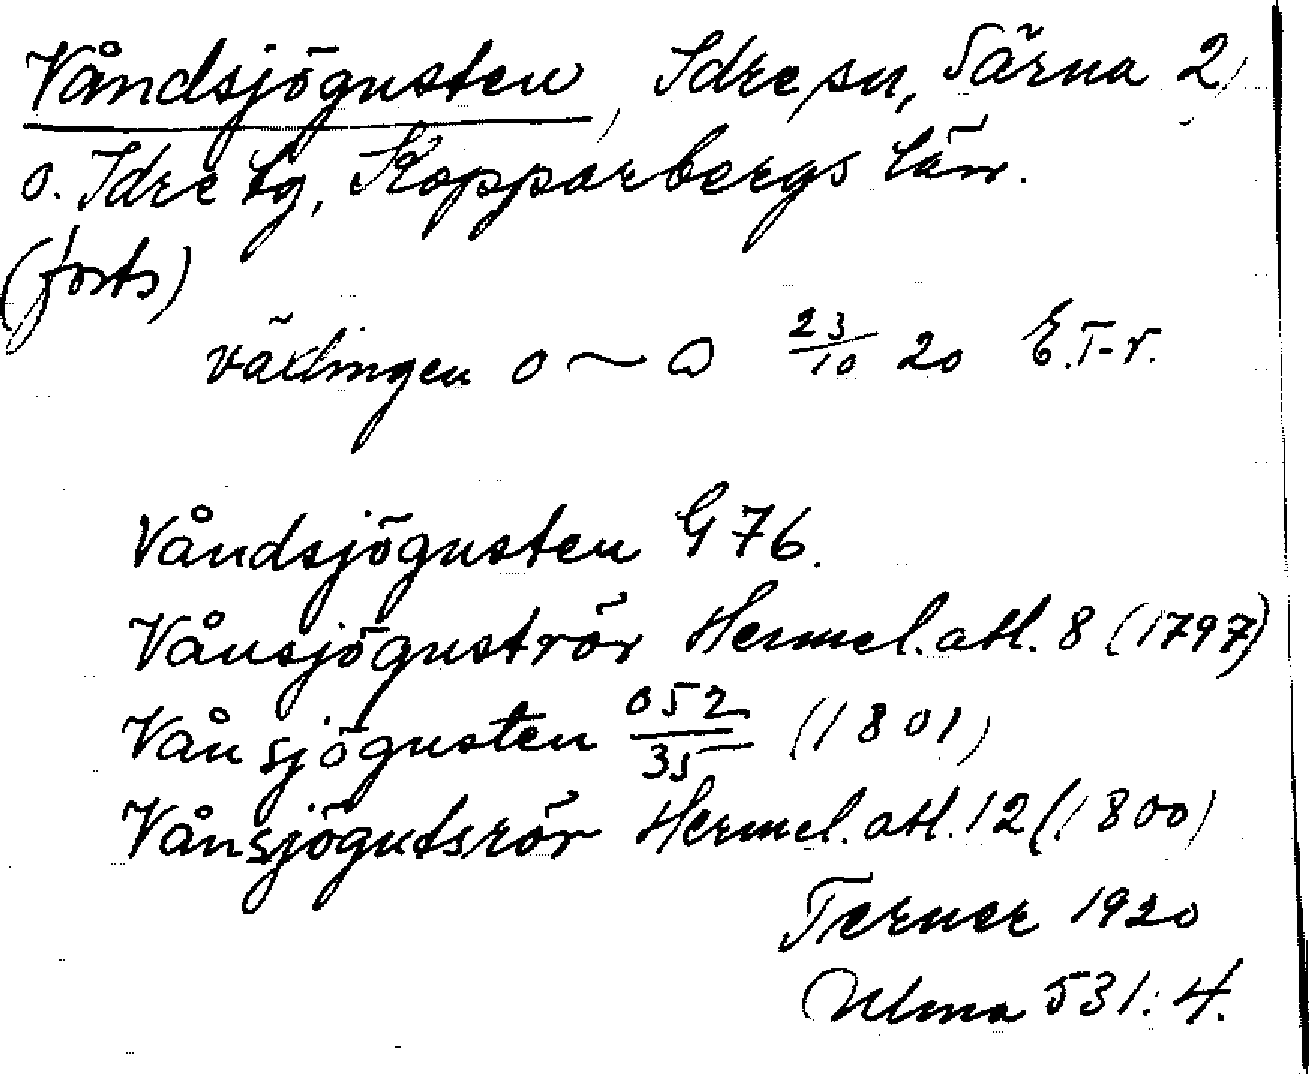 Våndsjögusten, Idre sn, Särna 2,
o. Idre tg, Kopparbergs län.
(forts)
växlingen o ~ 23/10 20 E.T-r.
Våndsjögusten G 76.
Vånsjöguströr Hermel. atl. 8 (1797)
Vånsjögusten 052/35 (1801)
Vånsjögutsrör Hermel. atl. 12 (1800)
Terner 1920
Ulma 531:4.